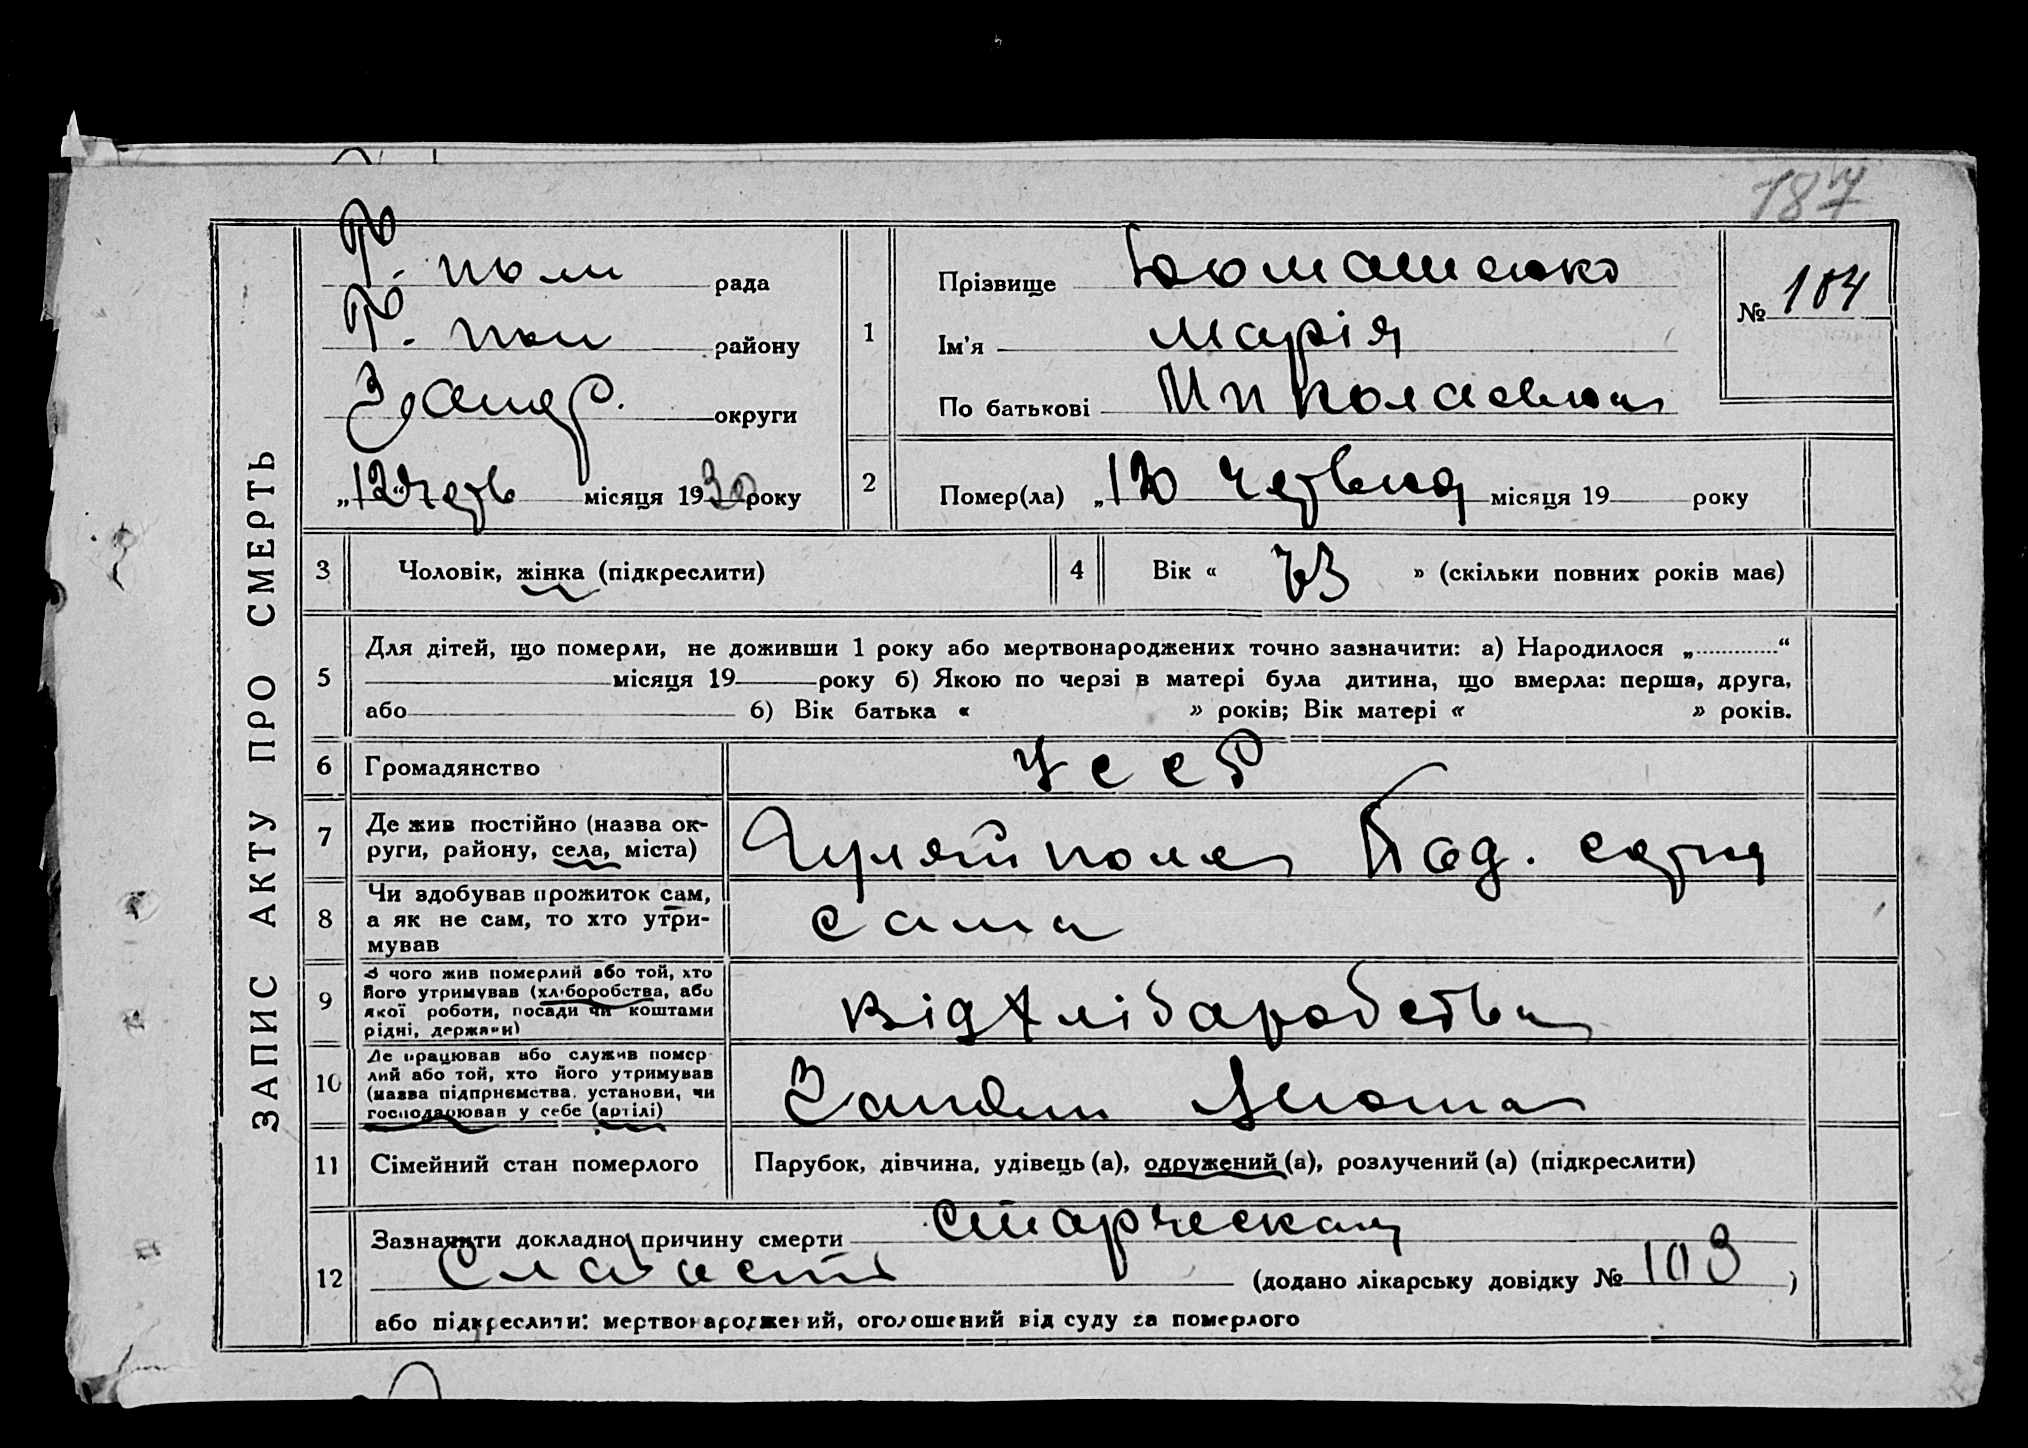 187
ЗАПИС АКТУ ПРО СМЕРТЬ
Г. поли рада
Г. пол району
Запор. округи
„12“ черв місяця 1930 року
1
Прізвище
Ім'я Марія
По батькові Миколаевна
№ 104
2
Помер(ла) „ червня місяця 19 року
3
Чоловік, жінка (підкреслити)
4
Вік « 73 » (скільки повних років має)
5
Для дітей, що померли, не доживши 1 року або мертвонароджених точно зазначити: а) Народилося „ “
місяця 19 року б) Якою по черзі в матері була дитина, що вмерла: перша, друга,
або 6) Вік батька « » років; Вік матері « » років.
6
Громадянство
УССР
7
Де жив постійно (назва ок-
руги, району, села, міста)
Гуляйполе сотня
8
Чи здобував прожиток сам,
а як не сам, то хто утри-
мував
сама
9
З чого жив померлий або той, хто
його утримував (хліборобства, або
якої роботи, посади чи коштами
рідні, держави)
від хліборобства
10
Де працював або служив помер-
лий або той, хто його утримував
(назва підприємства, установи, чи
господарював у себе (артілі)
11
Сімейний стан померлого
Парубок, дівчина, удівець (а), одружений (а), розлучений (а) (підкреслити)
12
Зазначити докладно причину смерти старческая
слабость (додано лікарську довідку № 103 )
або підкреслити: мертвонароджений, оголошений від суду за померлого